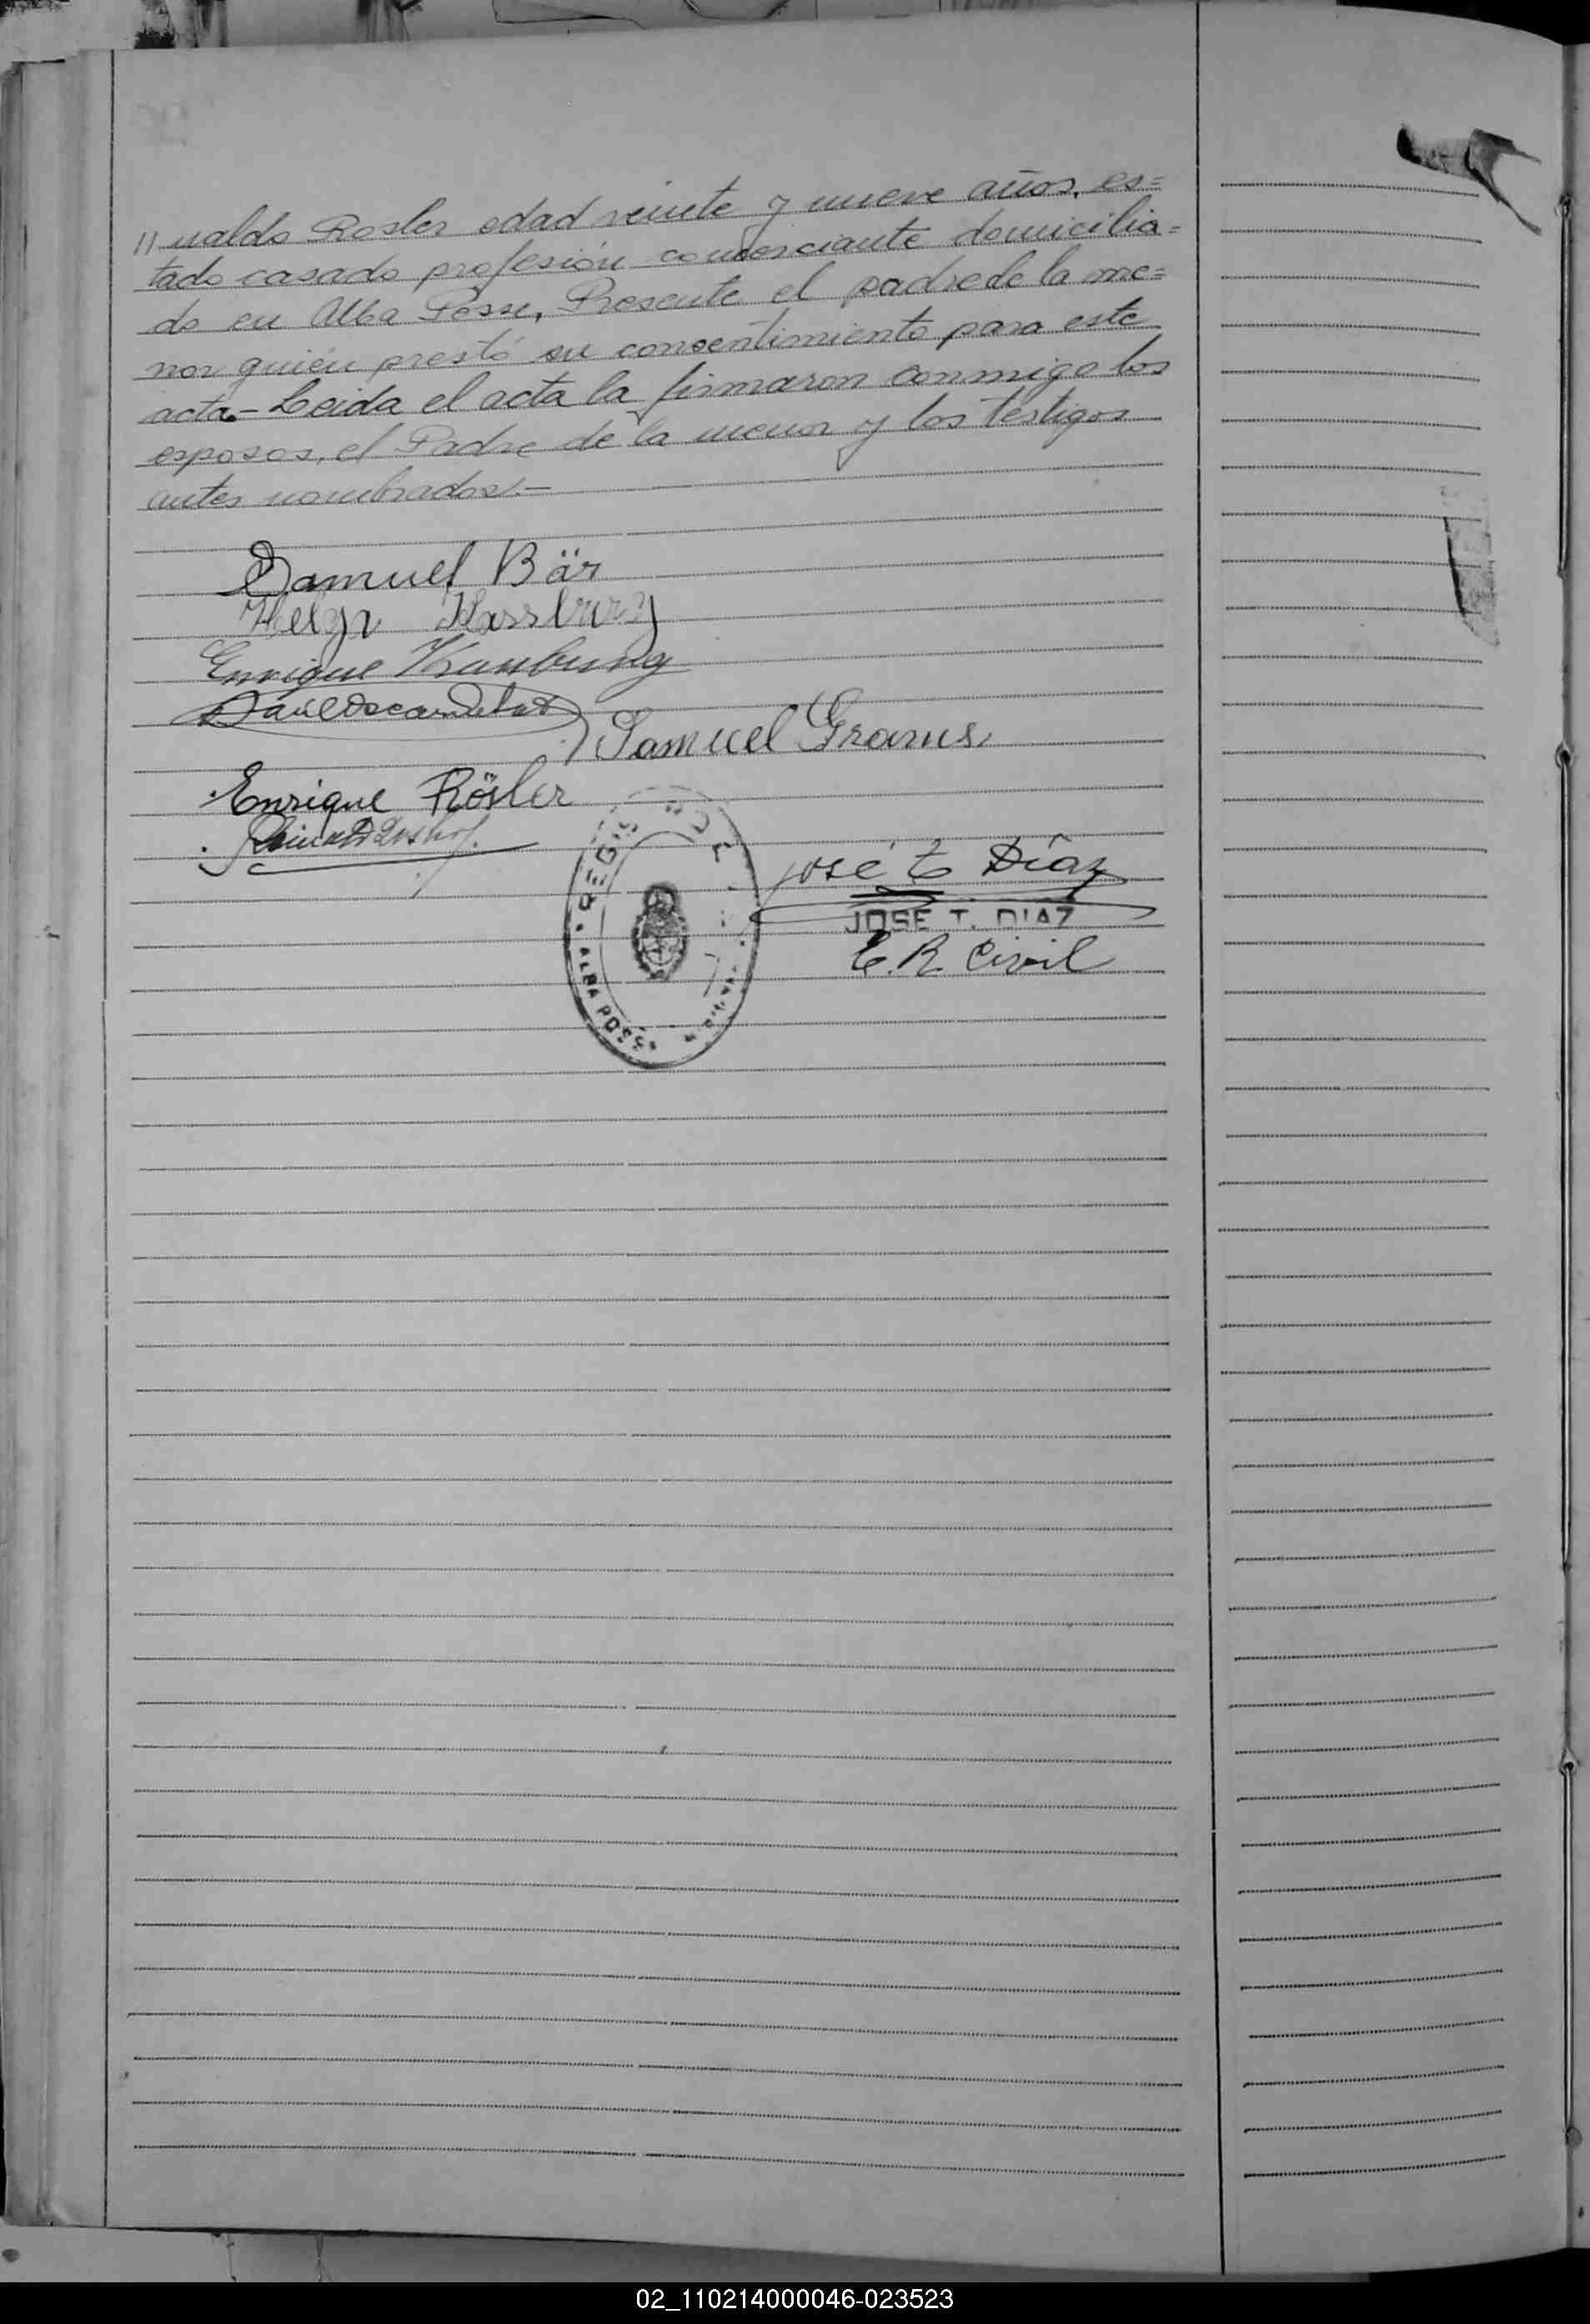 // naldo Rosler edad veinte y nueve años, es=
tado casado profesión comerciante domicilia=
do en Alba Posse, Presente el padre de la me=
nor quién prestó su consentimiento para este
acta.- Leida el acta la firmaron conmigo los
esposos, el Padre de la menor y los testigos
antes nombrados.-
Samuel Bär
Helga
Enrique
Samuel Grams
Enrique Rösler
REGIS
ALBA POSSE
José T Díaz
JOSE T. DIAZ
E. R. Civil
02_110214000046-023523